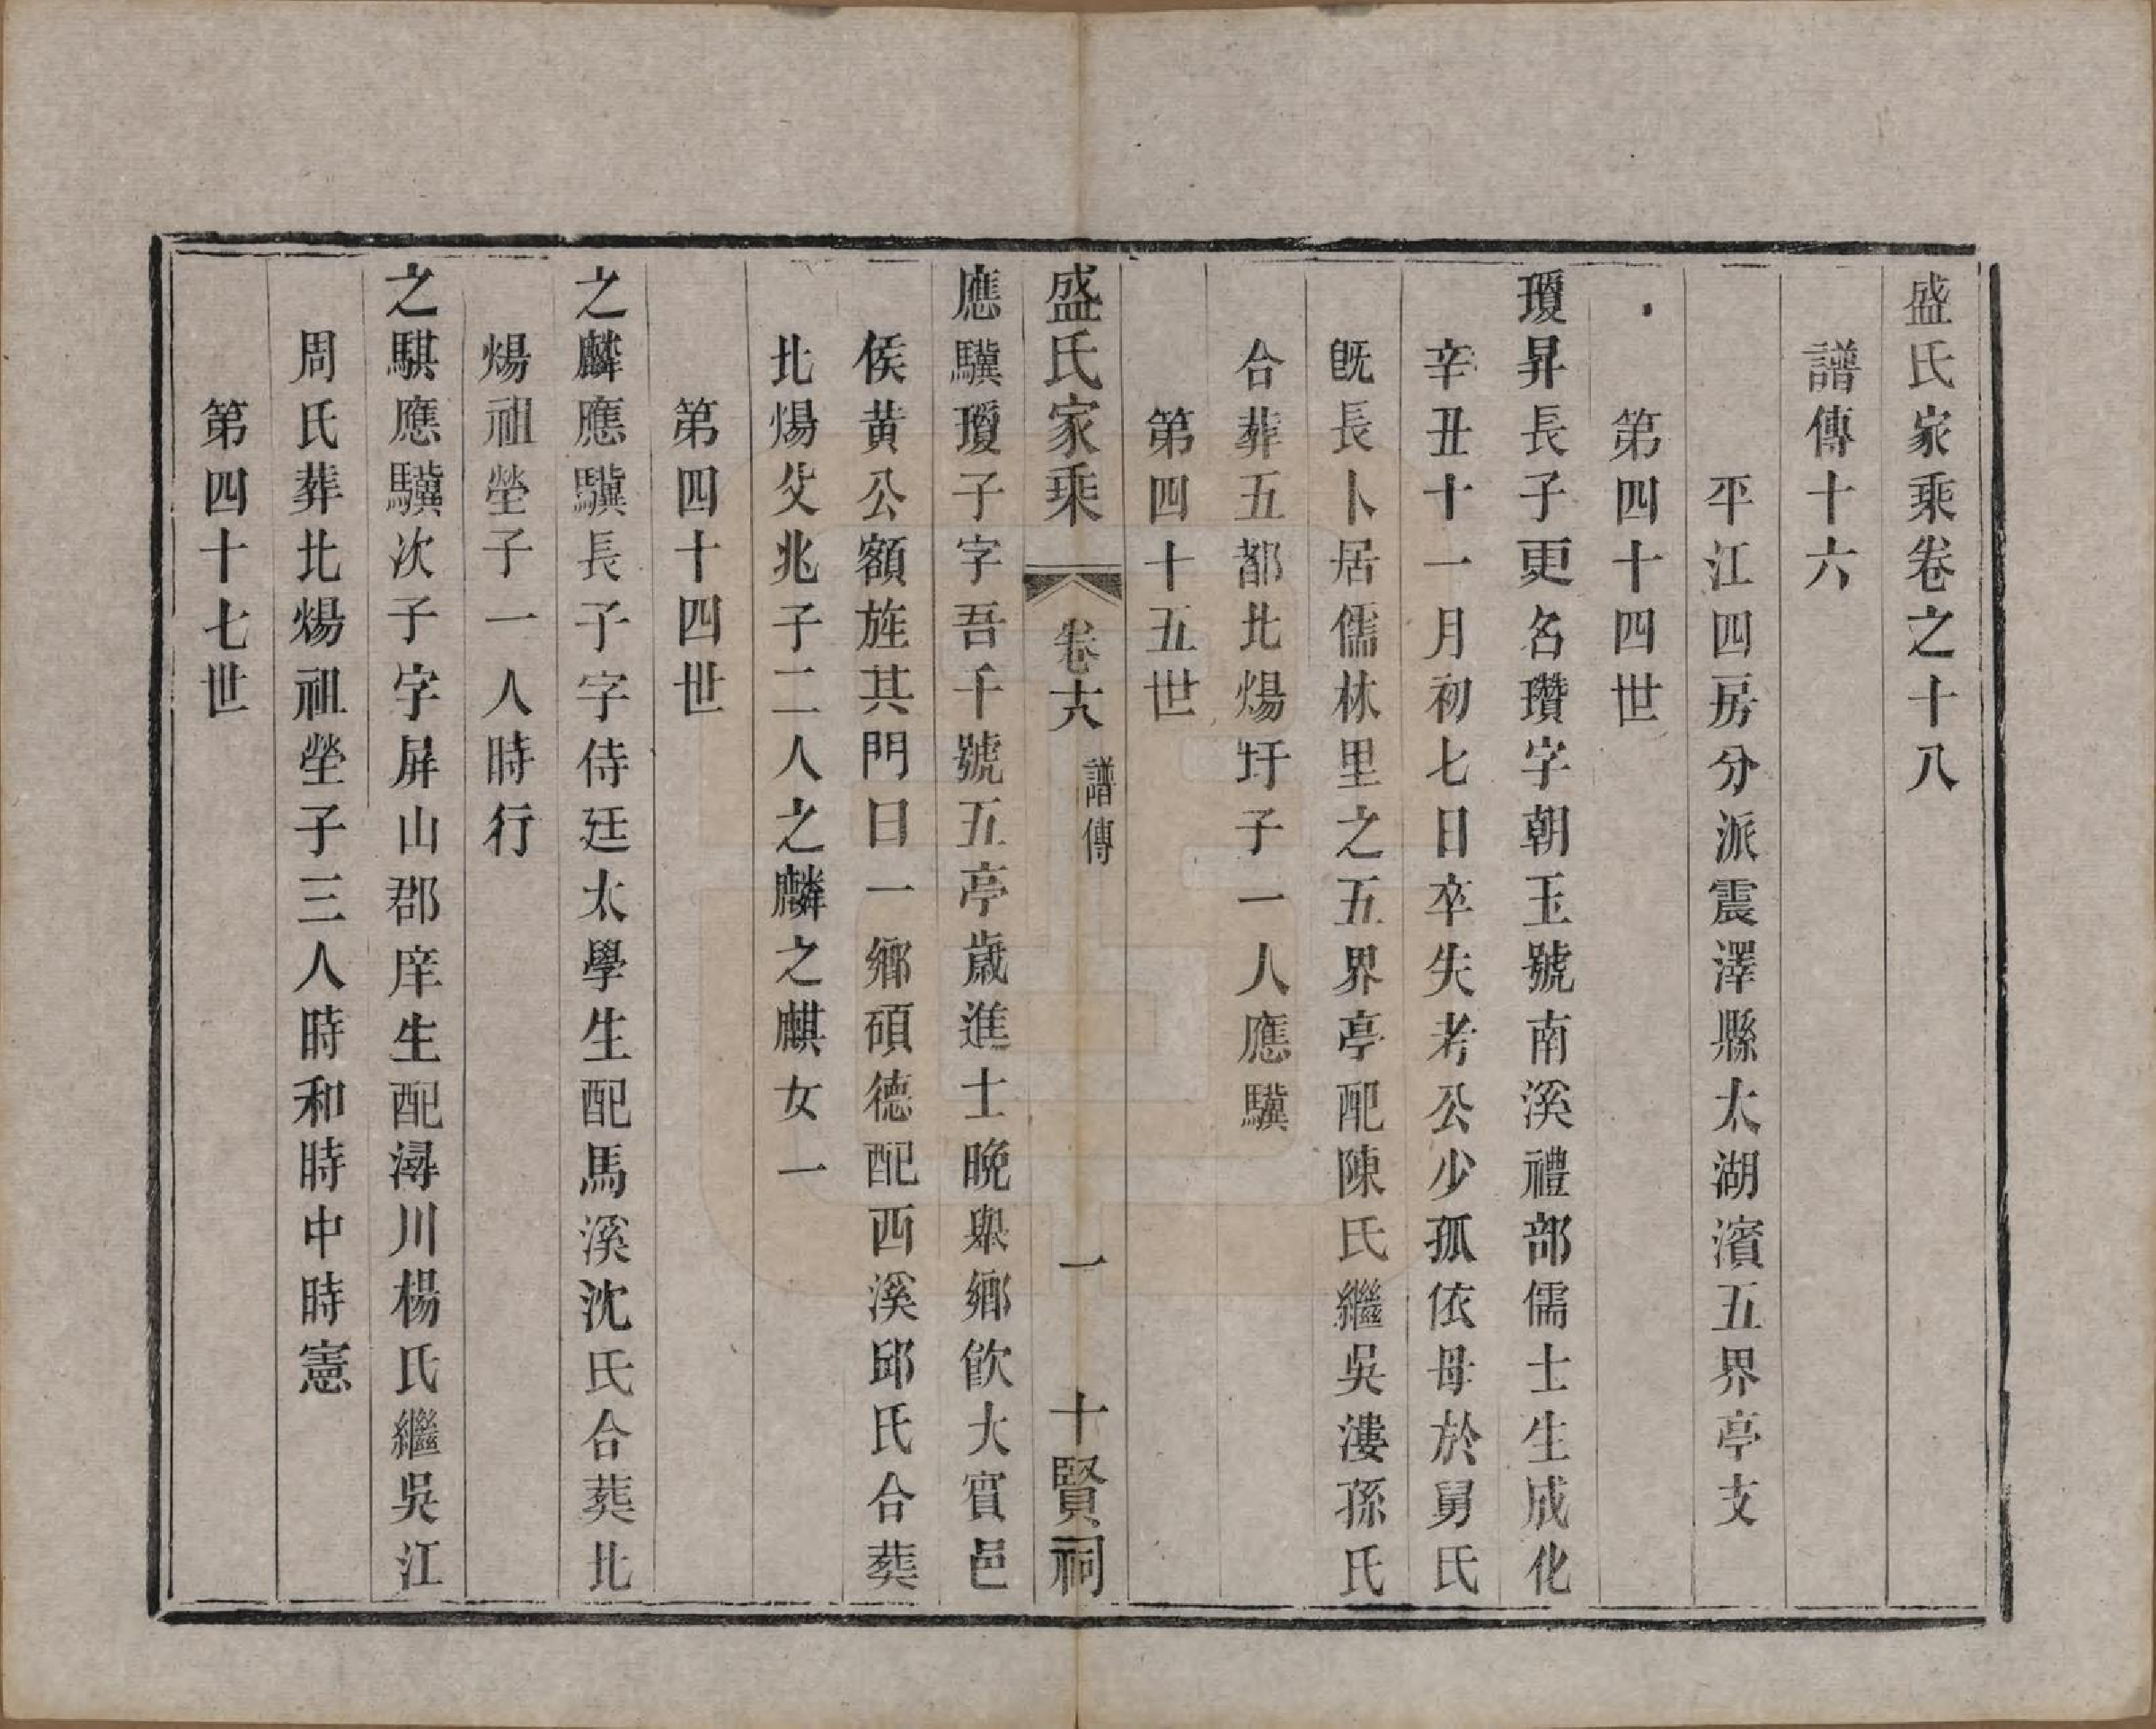 盛氏家乘卷之十八
譜傳十六
平江四房分派震澤縣太湖濱五界亭支
第四十四世
瓊昇長子更名瓚字朝玉號南溪禮部儒士生成化
辛丑十一月初七日卒失考公少孤依母於舅氏
旣長卜居儒林里之五界亭配陳氏繼吳漊孫氏
合葬五都北煬圩子一人應驥
第四十五世
盛氏家乘 卷十八 譜傳 一 十賢祠
應驥瓊子字吾千號五亭歲進士晚舉鄉飮大賓邑
侯黃公額旌其門曰一鄉碩德配西溪邱氏合葬
北煬攵兆子二人之麟之麒女一
第四十四世
之麟應驥長子字侍廷太學生配馬溪沈氏合葬北
煬祖塋子一人時行
之騏應驥次子字屏山郡庠生配潯川楊氏繼吳江
周氏葬北煬祖塋子三人時和時中時憲
第四十七世